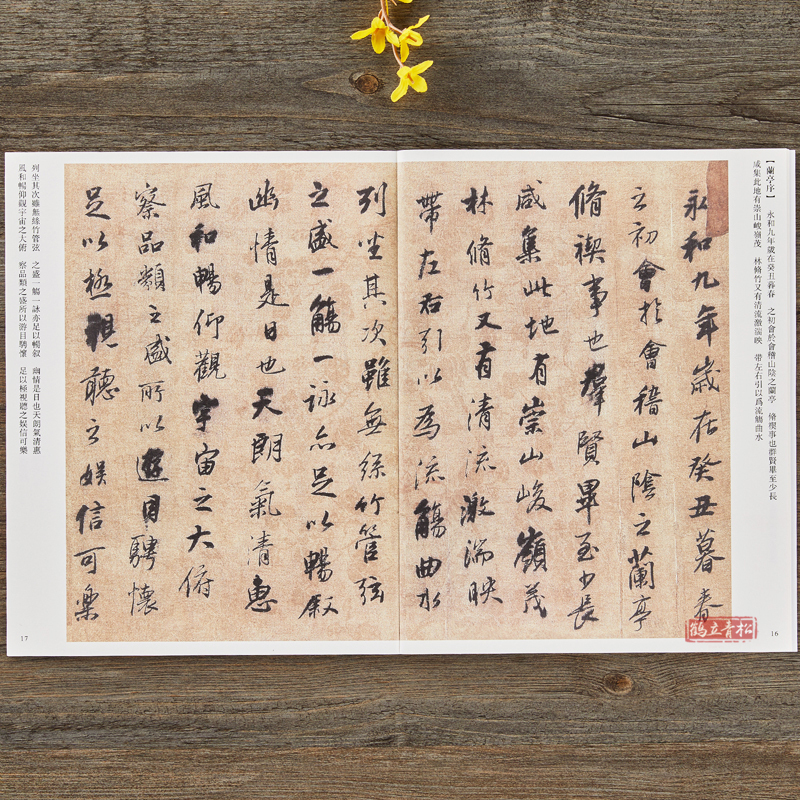 【蘭亭序】 永和九年歲在癸丑暮春 之初會於會稽山陰之蘭亭 脩禊事也群賢畢至少長
咸集此地有崇山峻嶺茂 林脩竹又有清流激湍映 帶左右引以爲流觴曲水
永和九年歲在癸丑暮春
之初會於會稽山陰之蘭亭
脩禊事也羣賢畢至少長
咸集此地有崇山峻嶺茂
林脩竹又有清流激湍映
帶左右引以為流觴曲水
16
鹤立青松
列坐其次雖無絲竹管弦
之盛一觴一詠亦足以暢敘
幽情是日也天朗氣清惠
風和暢仰觀宇宙之大俯
察品類之盛所以遊目騁懷
足以極視聽之娛信可樂
列坐其次雖無絲竹管弦 之盛一觴一詠亦足以暢敘 幽情是日也天朗氣清惠
風和暢仰觀宇宙之大俯 察品類之盛所以游目騁懷 足以極視聽之娛信可樂
17